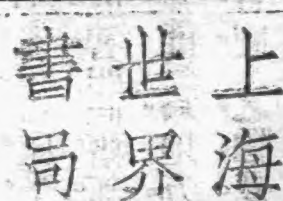 上海
世界
書局